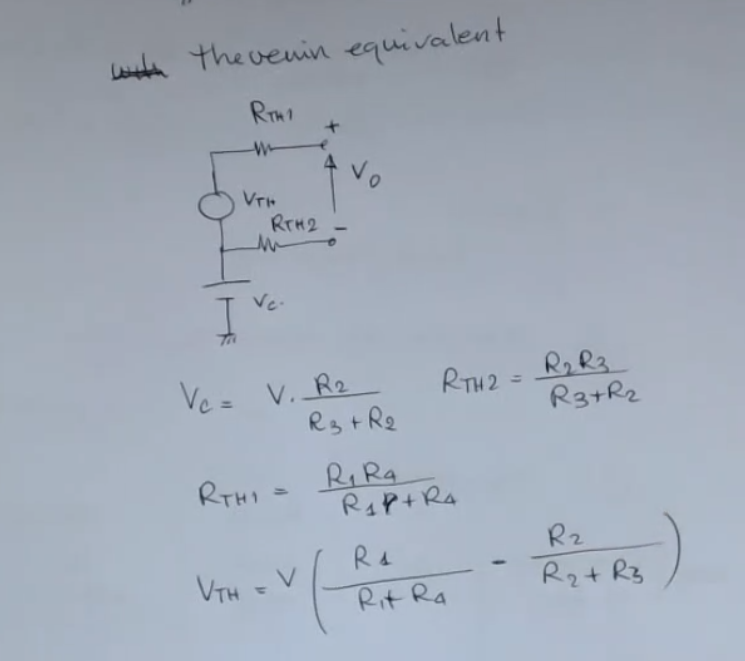 thevenin equivalent
RTH1
+
Vo
VTH
RTH2 -
Vc.
Vc = V. R2 / R3 + R2    RTH2 = R2R3 / R3+R2
RTH1 = R1 R4 / R1 + R4
VTH = V ( R1 / R1+ R4 - R2 / R2 + R3 )